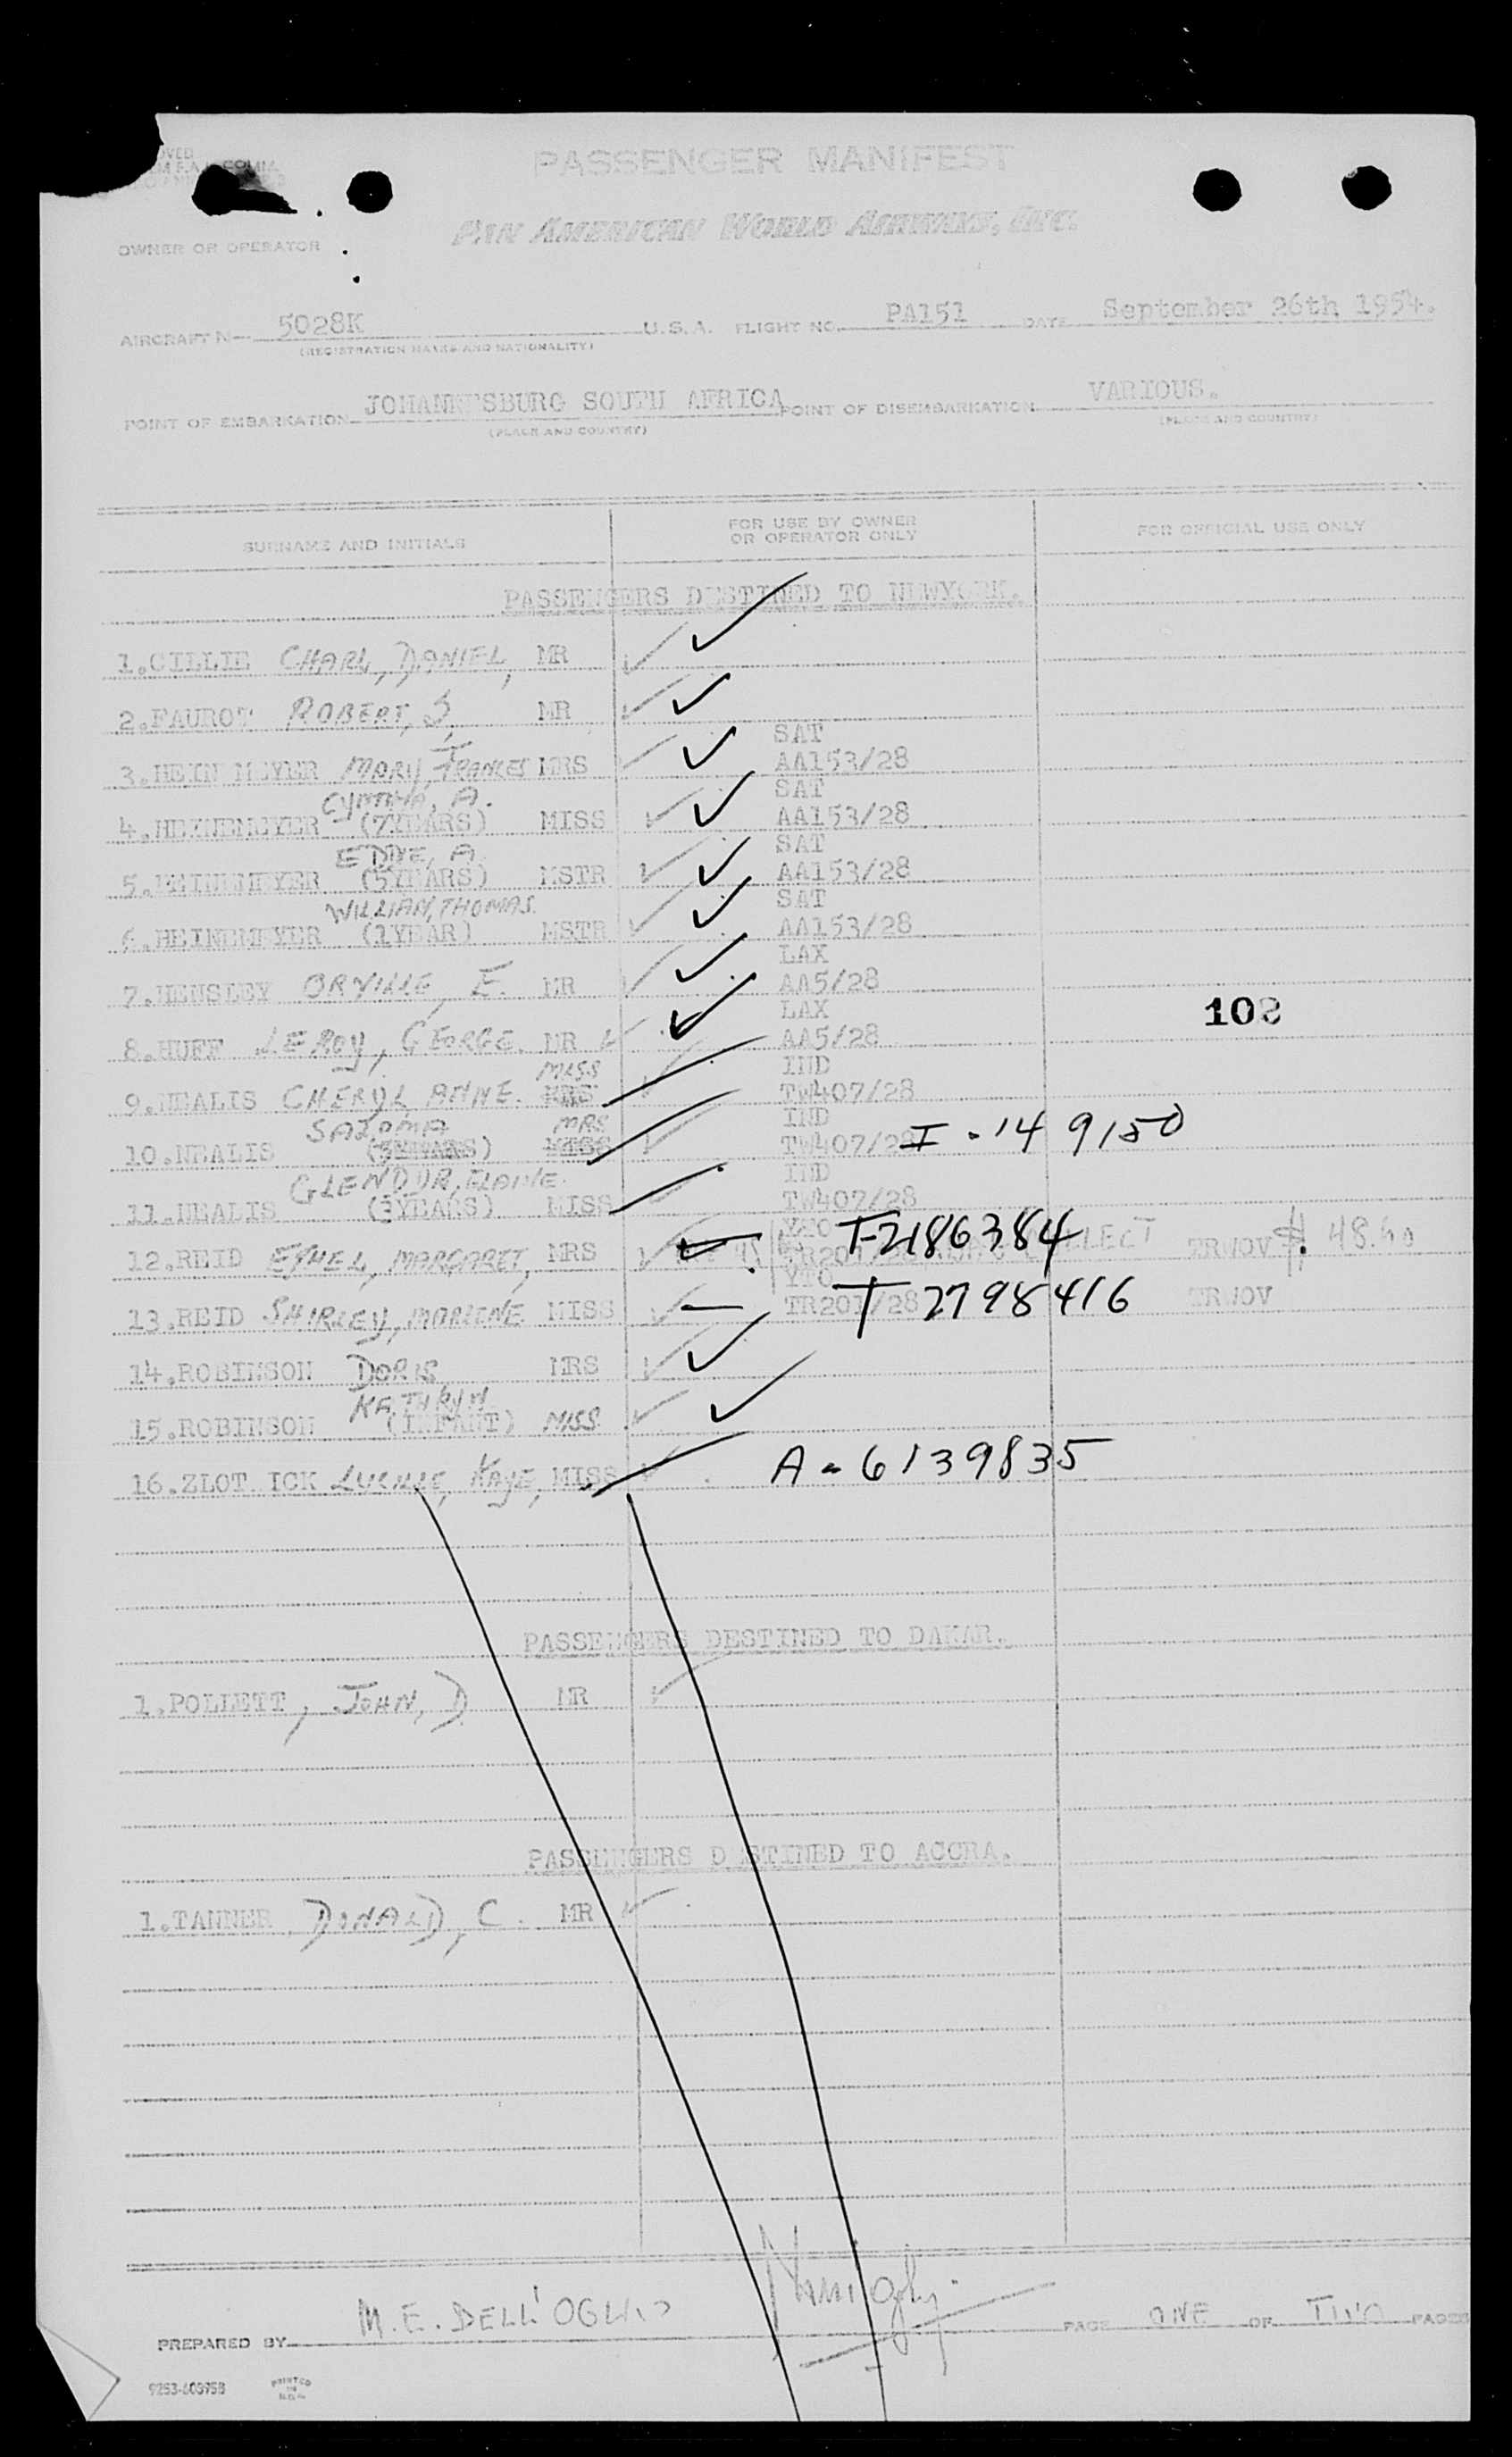 PASSENGER MANIFEST
PAN AMERICAN WORLD AIRWAYS, INC.
OWNER OR OPERATOR
AIRCRAFT N- 5028K U.S.A. FLIGHT NO. PA151 DATE September 26th 1954.
(REGISTRATION MARKS AND NATIONALITY)
POINT OF EMBARKATION JOHANNESBURG SOUTH AFRICA POINT OF DISEMBARKATION VARIOUS.
(PLACE AND COUNTRY) (PLACE AND COUNTRY)
SURNAME AND INITIALS FOR USE BY OWNER OR OPERATOR ONLY FOR OFFICIAL USE ONLY
PASSENGERS DESTINED TO NEWYORK.
1.CILLIE CHARL, DANIEL, MR
2.FAUROT ROBERT, S, MR
SAT
3.HEIN MEYER MARY, FRANCES MRS AA153/28
CYNTHIA, A. SAT
4.HEINEMEYER (7YEARS) MISS AA153/28
EDDIE, A. SAT
5.HEINEMEYER (5YEARS) MSTR AA153/28
WILLIAM, THOMAS. SAT
6.HEINEMEYER (1YEAR) MSTR AA153/28
LAX
7.HENSLEY ORVILLE, E. MR AA5/28
LAX
108
8.HUFF LEROY, GEORGE. MR AA5/28
MISS IND
9.NEALIS CHERYL ANNE. MRS TW407/28
SALOMA MRS IND
10.NEALIS MISS TW407/28 I-149150
GLENDUR, ELAINE. IND
11.NEALIS (3YEARS) MISS TW407/28
YTO T-2186384
12.REID ETHEL, MARGARET, MRS TR201/28 COLLECT TRNOV $ 48.60
YTO
13.REID SHIRLEY, MARLENE MISS TR201/28 T 2798416 TRNOV
14.ROBINSON DORIS MRS
KATHRYN
15.ROBINSON (INFANT) MISS
16.ZLOT ICK LUCILLE, KAYE, MISS A-6139835
PASSENGERS DESTINED TO DAKAR.
1.POLLETT, JOHN, D MR
PASSENGERS DESTINED TO ACCRA.
1.TANNER DONALD, C. MR
PREPARED BY M.E. DELL'OGLIO PAGE ONE OF TWO PAGES
9253-603958 PRINTED IN